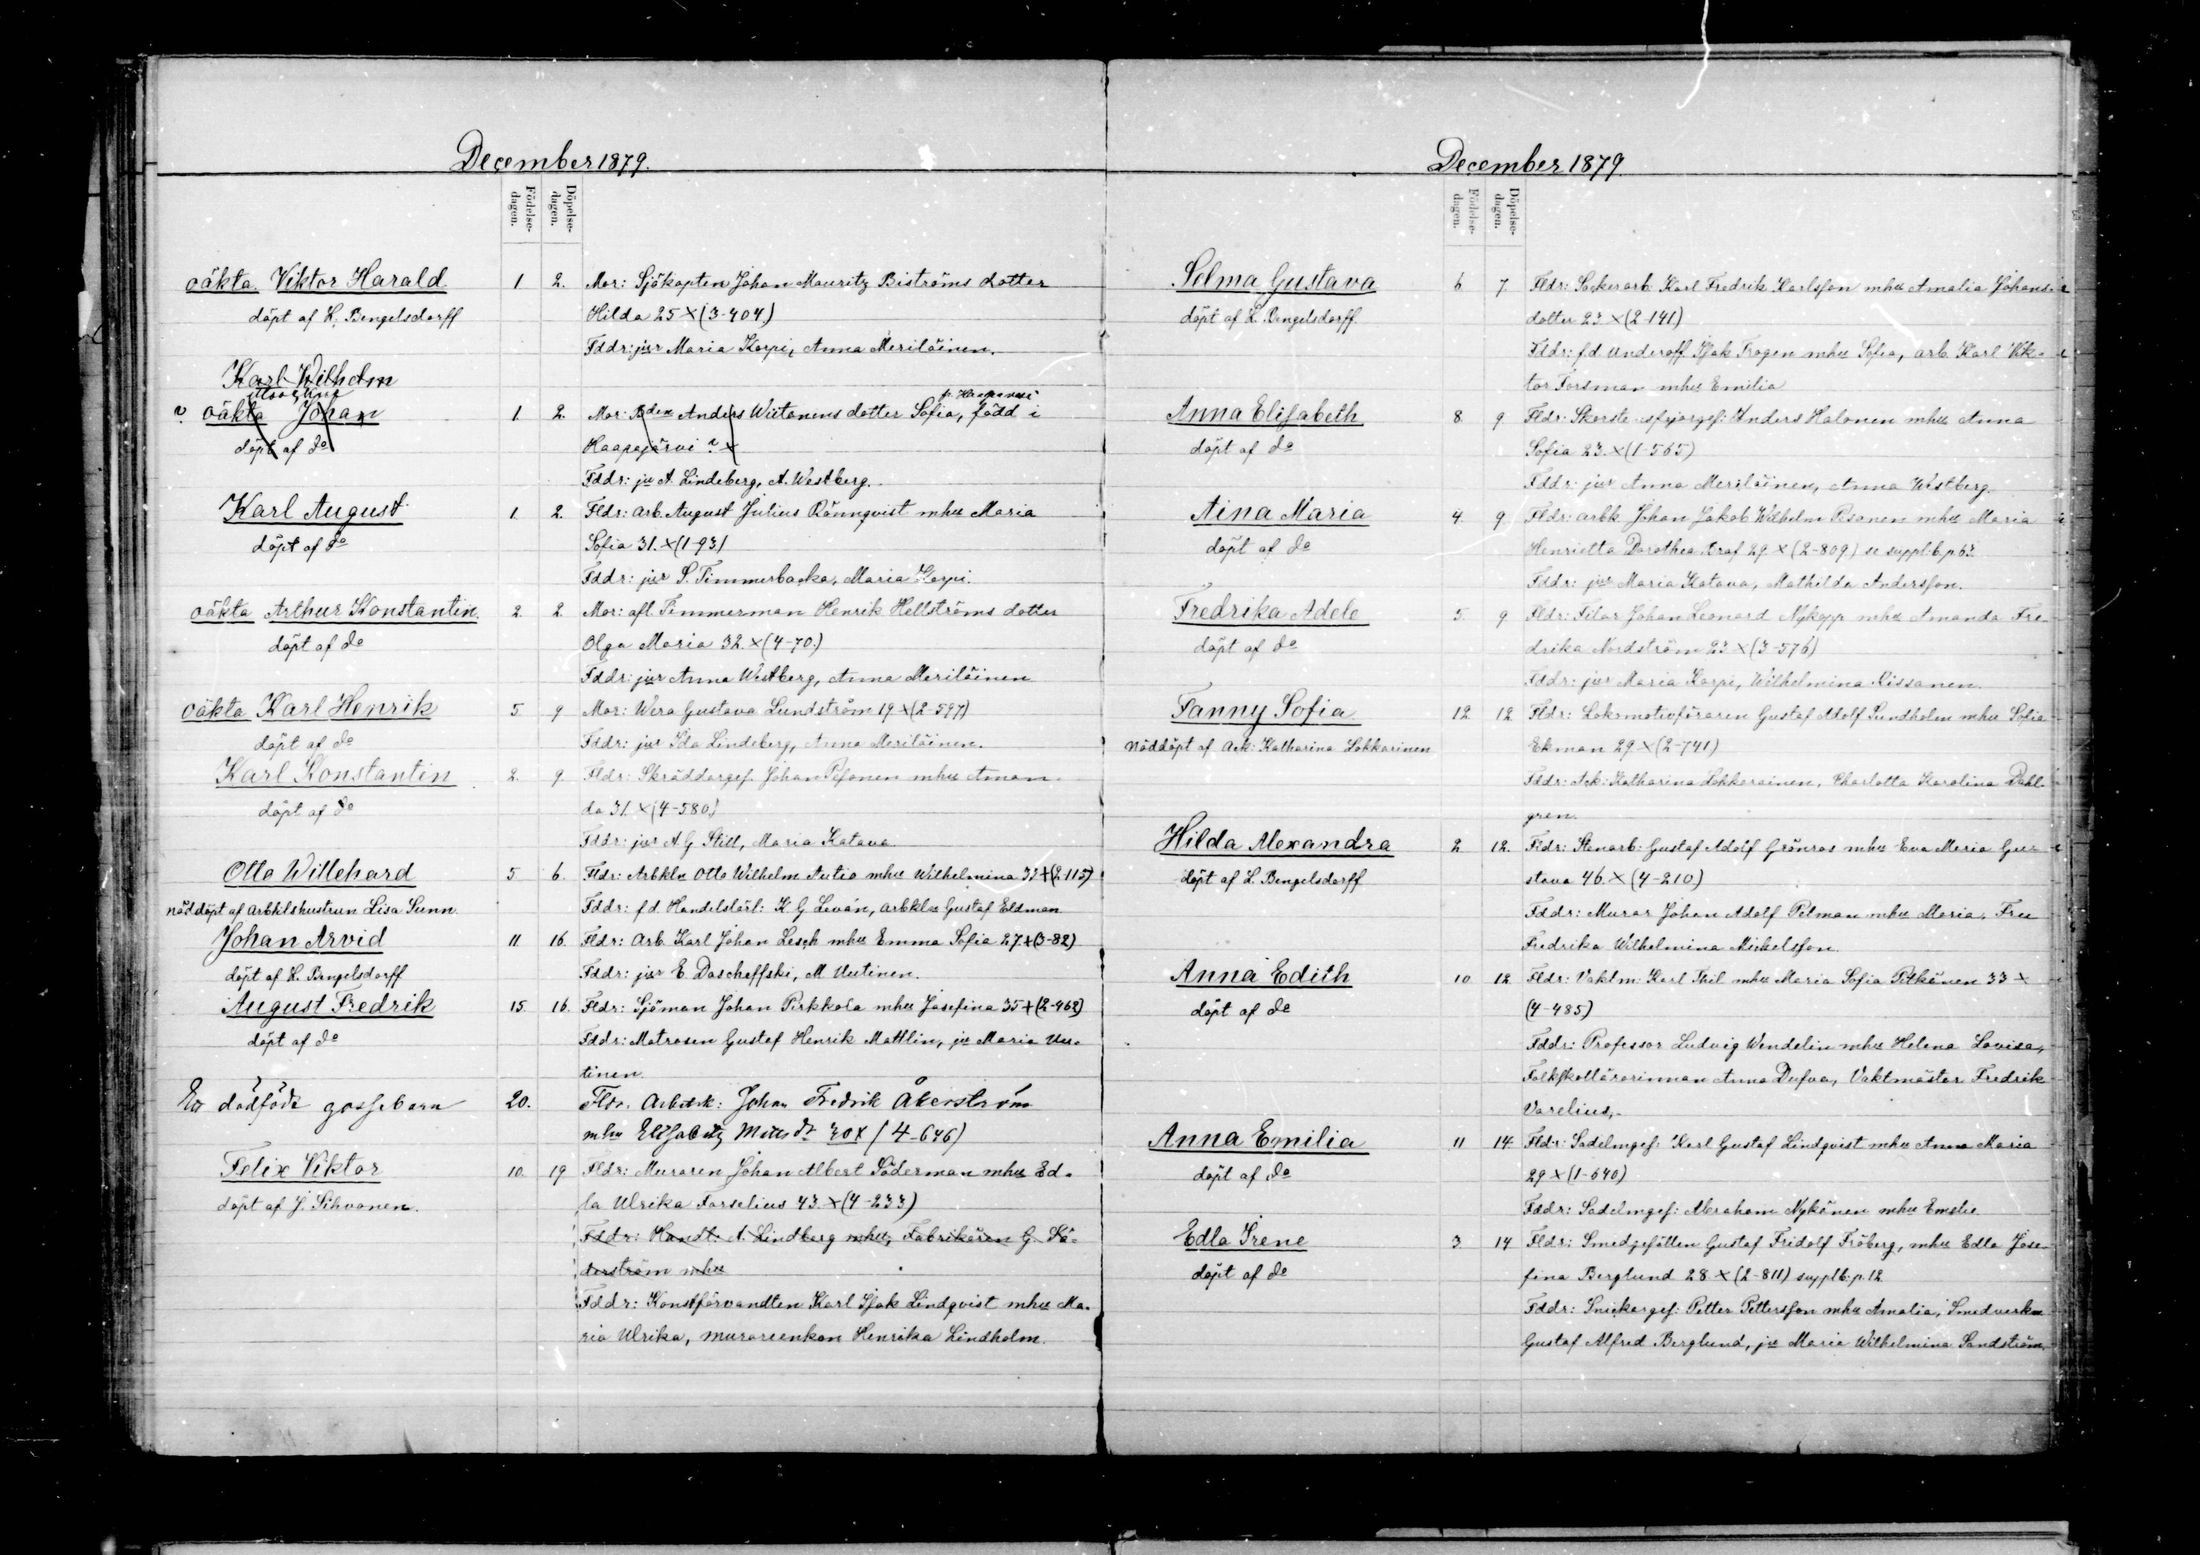 December 1879.
Födelse-
dagen.
Döpelse-
dagen.
oäkta Viktor Harald 1 2. Mor: Sjökapten Johan Mauritz Biströms dotter
döpt af H. Bengelsdorff Hilda 25 × (3-404)
Fddr: jur Maria Korpi, Anna Meriläinen.
Karl Wilhelm
oäkta Johan 1 2. Mor: Anders Wiitanens dotter Sofia, född i
döpt af do Haapajärvi ? ×
Fddr: ju A. Lindeberg, A. Westberg.
Karl August 1. 2. Fldr: Arb. August Julius Rönnqvist mhu Maria
döpt af do Sofia 31. × (1-93)
Fddr: jur S. Timmerbacka, Maria Korpi.
oäkta Arthur Konstantin 2. 2. Mor: afl. Timmerman Henrik Hellströms dotter
döpt af do Olga Maria 32. × (4-70.)
Fddr: jur Anna Westberg, Anna Meriläinen
oäkta Karl Henrik 5. 9 Mor: Wera Gustava Lundström 19 × (2-597)
döpt af do Fddr: jur Ida Lindeberg, Anna Meriläinen.
Karl Konstantin 2. 9. Fldr: Skräddargef. Johan Pesonen mhu Aman-
döpt af do da 31. × (4-580)
Fddr: jur A G Still, Maria Katava.
Otto Willehard 5 6. Fldr: Arbkln Otto Wilhelm Autio mhu Wilhelmina 32 + (2-115)
nöddöpt af arbklshustrun Lisa Sunn Fddr: f.d. Handelslärl: K. G. Levón, arbkln Gustaf Eldman
Johan Arvid 11 16. Fldr: Arb. Karl Johan Lesch mhu Emma Sofia 27 + (3-82)
döpt af H. Bengelsdorff Fddr: jur E. Dascheffski, M Uutinen.
August Fredrik 15. 16. Fldr: Sjöman Johan Pirkkola mhu Josefina 35 + (2-462)
döpt af do Fddr: Matrosen Gustaf Henrik Mattlin, ju Maria Uu-
tinen.
Ett dödfödt gossebarn 20. Fldr. Arbetsk: Johan Fredrik Åkerström
mhu Elisabeth 30 × (4-646)
Felix Viktor 10. 19 Fldr: Muraren Johan Albert Söderman mhu Ed-
döpt af J. Sihvonen. la Ulrika Forselius 43. × (4-233)
Fddr: Handl: A. Lindberg mhu, Fabrikören G. Sö-
derström mhu
Fddr: Konstförvandten Karl Isak Lindqvist mhu Ma-
ria Ulrika, murareenkan Henrika Lindholm.
December 1879
Födelse-
dagen.
Döpelse-
dagen.
Selma Gustava 6 7 Fldr: Sockerarb. Karl Fredrik Karlsson mhu Amalia Johans-
döpt af H. Bengelsdorff. dotter 23 × (2-141)
Fddr: f.d. Underoff. Isak Trogen mhu Sofia, arb. Karl Vik-
tor Forsman mhu Emilia
Anna Elisabeth 8. 9 Fldr: Anders Halonen mhu Anna
döpt af do Sofia 23. × (1-565)
Fddr: jur Anna Meriläinen, Anna Westberg.
Aina Maria 4. 9. Fldr: arbk. Johan Jakob Wilhelm mhu Maria
döpt af do Henrietta Dorothea 29 × (2-809) se suppl. b. p. 62
Fddr: jur Maria Katava, Mathilda Andersson.
Fredrika Adele 5. 9 Fldr: Filar Johan Leonard Nykopp mhu Amanda Fre-
döpt af do drika Nordström 23 × (3-576)
Fddr: jur Maria Korpi, Wilhelmina Rissanen.
Fanny Sofia 12. 12 Fldr: Lokomotivföraren Gustaf Adolf Sundholm mhu Sofia
Nöddöpt af Ack: Katharina Lokkarinen Ekman 29 × (2-741)
Fddr: Ack: Katharina Lokkarainen, Charlotta Karolina Dahl-
gren.
Hilda Alexandra 2 12. Fldr: Stenarb: Gustaf Adolf Grönros mhu Eva Maria Gus-
döpt af H. Bengelsdorff stava 46. × (4-210)
Fddr: Murar Johan Adolf Pelman mhu Maria, Fru
Fredrika Wilhelmina Mickelsson.
Anna Edith 10 12 Fldr: Vaktm: Karl Thil mhu Maria Sofia Pitkänen 33 ×
döpt af do (4-485)
Fddr: Professor Ludvig Wendelin mhu Helena Lovisa,
Folkskollärarinnan Anna Dufva, Vaktmäster Fredrik
Varelius.
Anna Emilia 11 14. Fldr: Sadelmgef: Karl Gustaf Lindqvist mhu Anna Maria
döpt af do 29 × (1-640)
Fddr: Sadelmgef: Abraham Nykänen mhu Emelie
Edla Irene 3 14 Fldr: Smedjefällen Gustaf Fridolf Fröberg, mhu Edla Jose-
döpt af do fina Berglund 28 × (2-811) supplb. p. 12
Fddr: Snickargef: Petter Pettersson mhu Amalia, Smedverkm
Gustaf Alfred Berglund, ju Maria Wilhelmina Sandström.